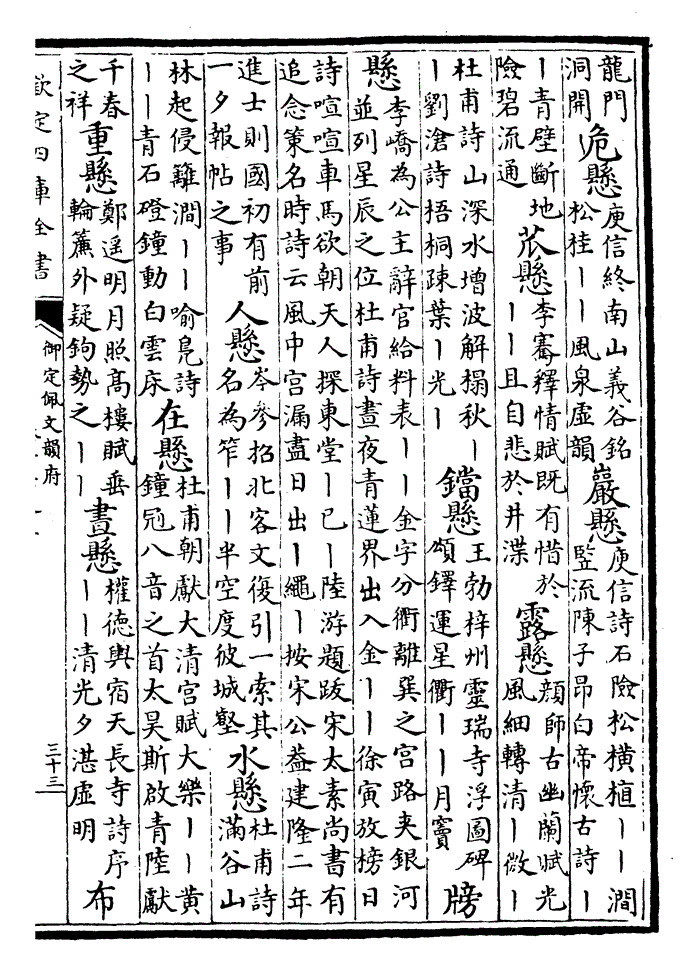 龍門
洞開
危懸
庾信終南山義谷銘
松桂丨丨風泉虛韻
巖懸
庾信詩石險松橫植丨丨澗
竪流陳子昂白帝懷古詩丨
丨青壁斷地
險碧流通
苽懸
李騫釋情賦既有惜於
丨丨且自悲於井渫
露懸
顔師古幽蘭賦光
風細轉清丨微丨
杜甫詩山深水增波解榻秋丨
丨劉滄詩梧桐疎葉丨光丨
鐺懸
王勃梓州靈瑞寺浮圖碑
頌鐸運星衢丨丨月竇
牓
懸
李嶠為公主辭官給料表丨丨金字分衢離巽之宮路夾銀河
並列星辰之位杜甫詩晝夜青蓮界出入金丨丨徐寅放榜日
詩喧喧車馬欲朝天人探東堂丨已丨陸游題跋宋太素尚書有
追念策名時詩云風中宮漏盡日出丨繩丨按宋公葢建隆二年
進士則國初有前
一夕報帖之事
人懸
岑參招北客文復引一索其
名為笮丨丨半空度彼城壑
水懸
杜甫詩
滿谷山
林起侵籬澗丨丨喻鳧詩
丨丨青石磴鐘動白雲床
在懸
杜甫朝獻大清宮賦大樂丨丨黃
鐘冠八音之首太昊斯啟青陸獻
千春
之祥
重懸
鄭遥明月照髙樓賦垂
輪簾外疑鉤勢之丨丨
晝懸
權德輿宿天長寺詩序
丨丨清光夕湛虛明
布
欽定四庫全書
御定佩文韻府
三十三